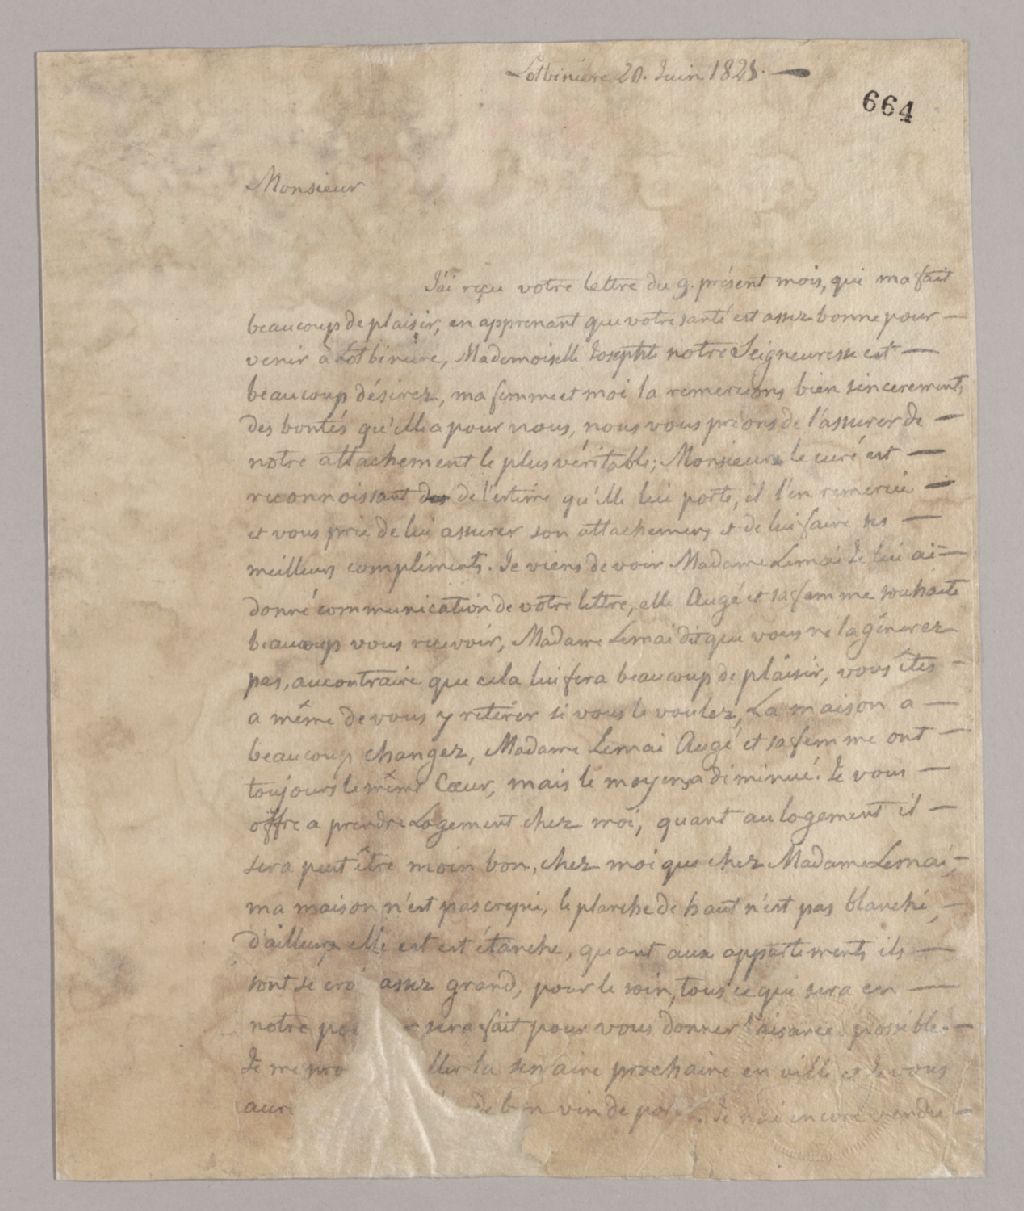 Lotbiniere 20. Juin 1825.
664
Monsieur
J'ai reçu votre lettre du 9. présent mois, qui ma fait
beaucoup de plaisir, en apprenant que votre santé est assez bonne pour
venir à Lotbiniere, Mademoiselle Josephte notre Seigneuresse est
beaucoup désirez, ma femme et moi la remercions bien sincerements
des bontés qu'elle a pour nous, nous vous prions de l'assurer de
notre attachement le plus véritable; Monsieur le curé est
reconnoissant de l'estime qu'elle lui porte, il l'en remercie
et vous prie de lui assurer son attachement et de lui faire ses
meilleurs compliments. Je viens de voir Madame Lemai Je lui ai
donné communication de votre lettre, elle Augé et sa femme souhaite
beaucoup vous recevoir, Madame Lemai dit que vous ne la gênerez
pas, aucontraire que cela lui fera beaucoup de plaisir, vous êtes
a même de vous y retirer si vous le voulez, La maison a
beaucoup changez, Madame Lemai Augé et sa femme ont
toujours le même Cœur, mais le moyen a diminué. Je vous
offre a prendre Logement chez moi, quant au logement il
sera peut être moin bon, chez moi que chez Madame Lemai,
ma maison n'est pas crepi, le planche de haut n'est pas blanchi,
d'ailleurs elle est est étanche, quant aux appartements ils
sont assez grand, pour le soin, tous ce qui sera en
notre sera fait pour vous donner l'aisance possible.
Je me la semaine prochaine en ville et Je vous
de bon vin de Je n'ai encore vendu